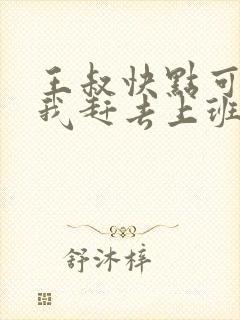 王叔快點可
我赶去上班
舒沐梓